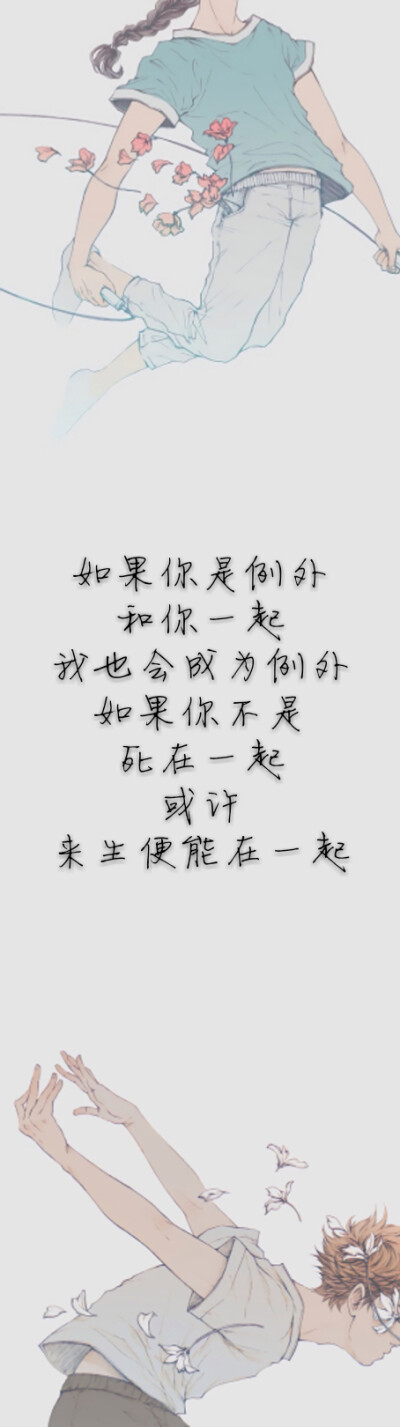 如果你是例外
和你一起
我也会成为例外
如果你不是
死在一起
或许
来生便能在一起